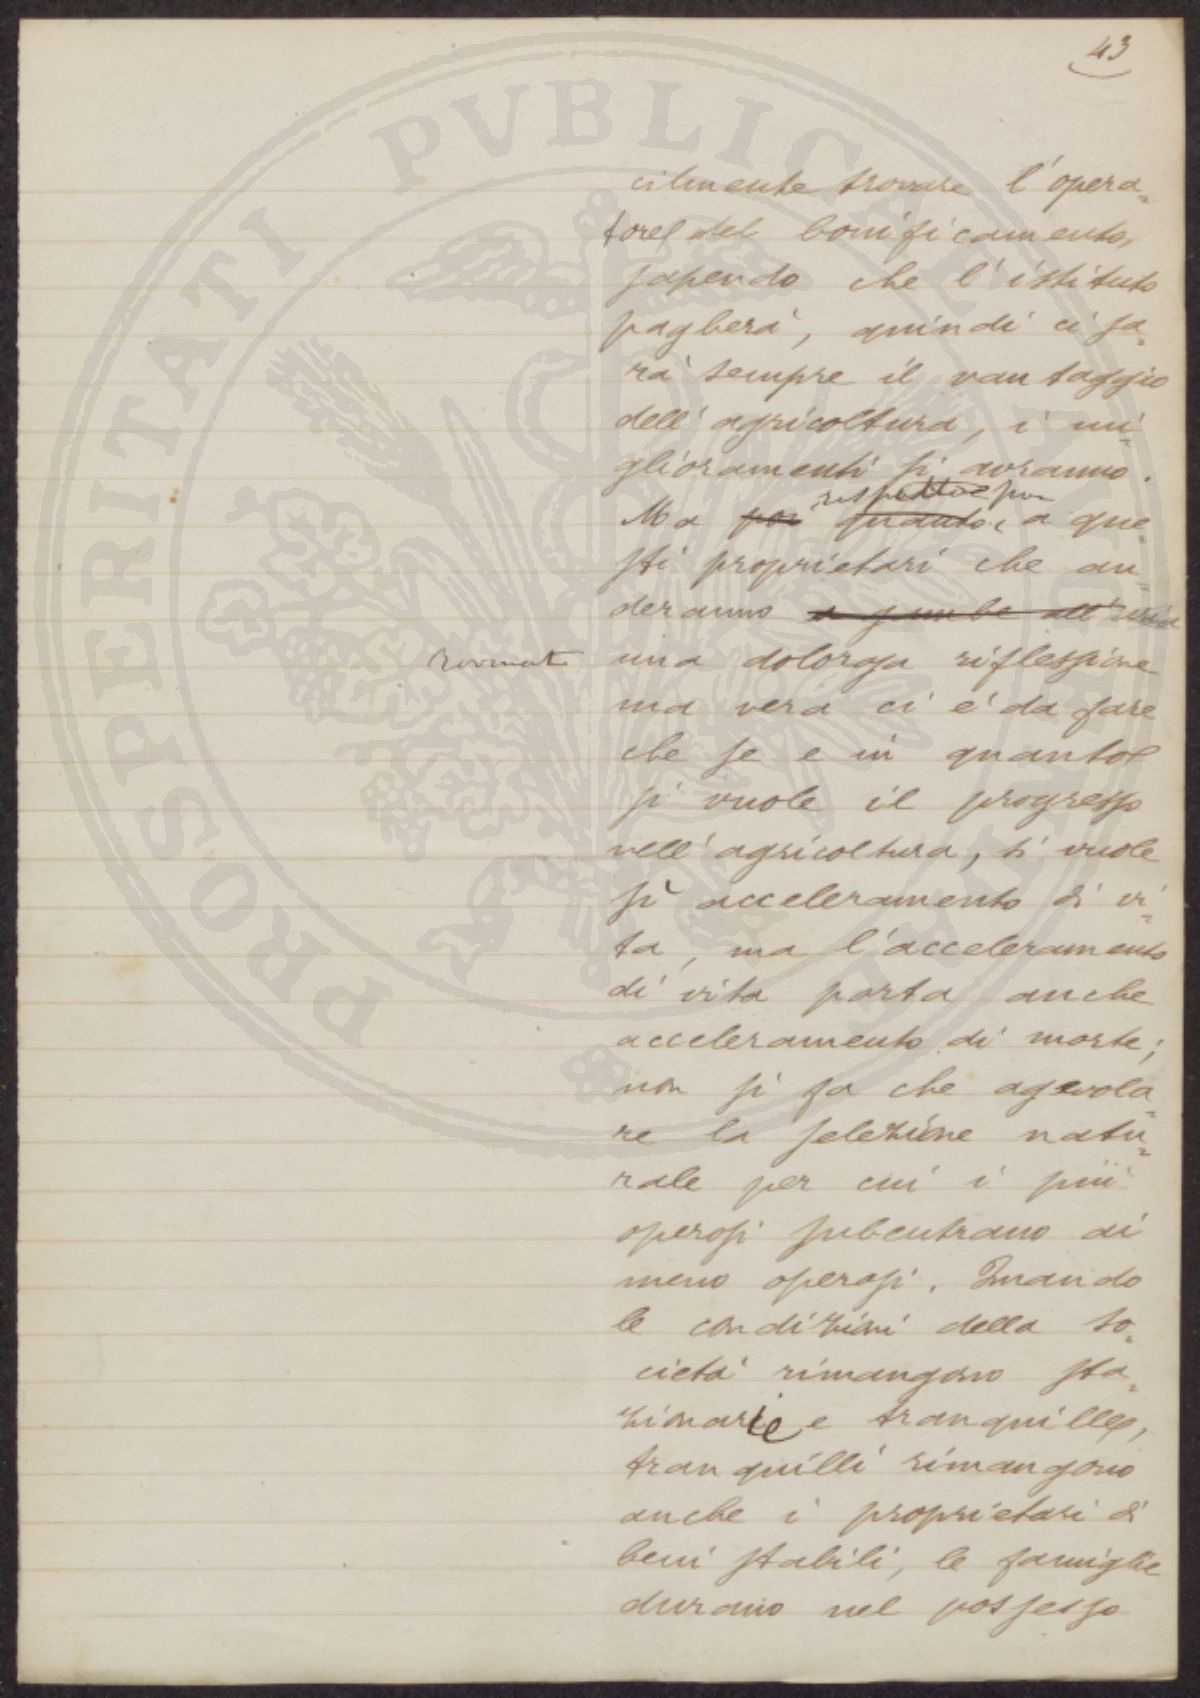 43
cilmente trovare l'opera=
tore del bonificamento,
sapendo che l'istituto
pagherà, quindi ci sa=
rà sempre il vantaggio
dell'agricoltura, i mi=
glioramenti si avranno.
rispetto per
Ma poi quanto, a que=
sti proprietari che an=
deranno a gambe all'aria
rovinati
una dolorosa riflessione
ma vera ci è da fare
che se e in quanto
si vuole il progresso
nell'agricoltura, si vuole
sì acceleramento di vi=
ta, ma l'acceleramento
di vita porta anche
acceleramento di morte;
non si fa che agevola=
re la selezione natu=
rale per cui i più
operosi subentrano ai
meno operosi. Quando
le condizioni della so=
cietà rimangono sta=
zionarie e tranquille,
tranquilli rimangono
anche i proprietari di
beni stabili, le famiglie
durano nel possesso
PROSPERITATI PVBLICAE AVGENDAE